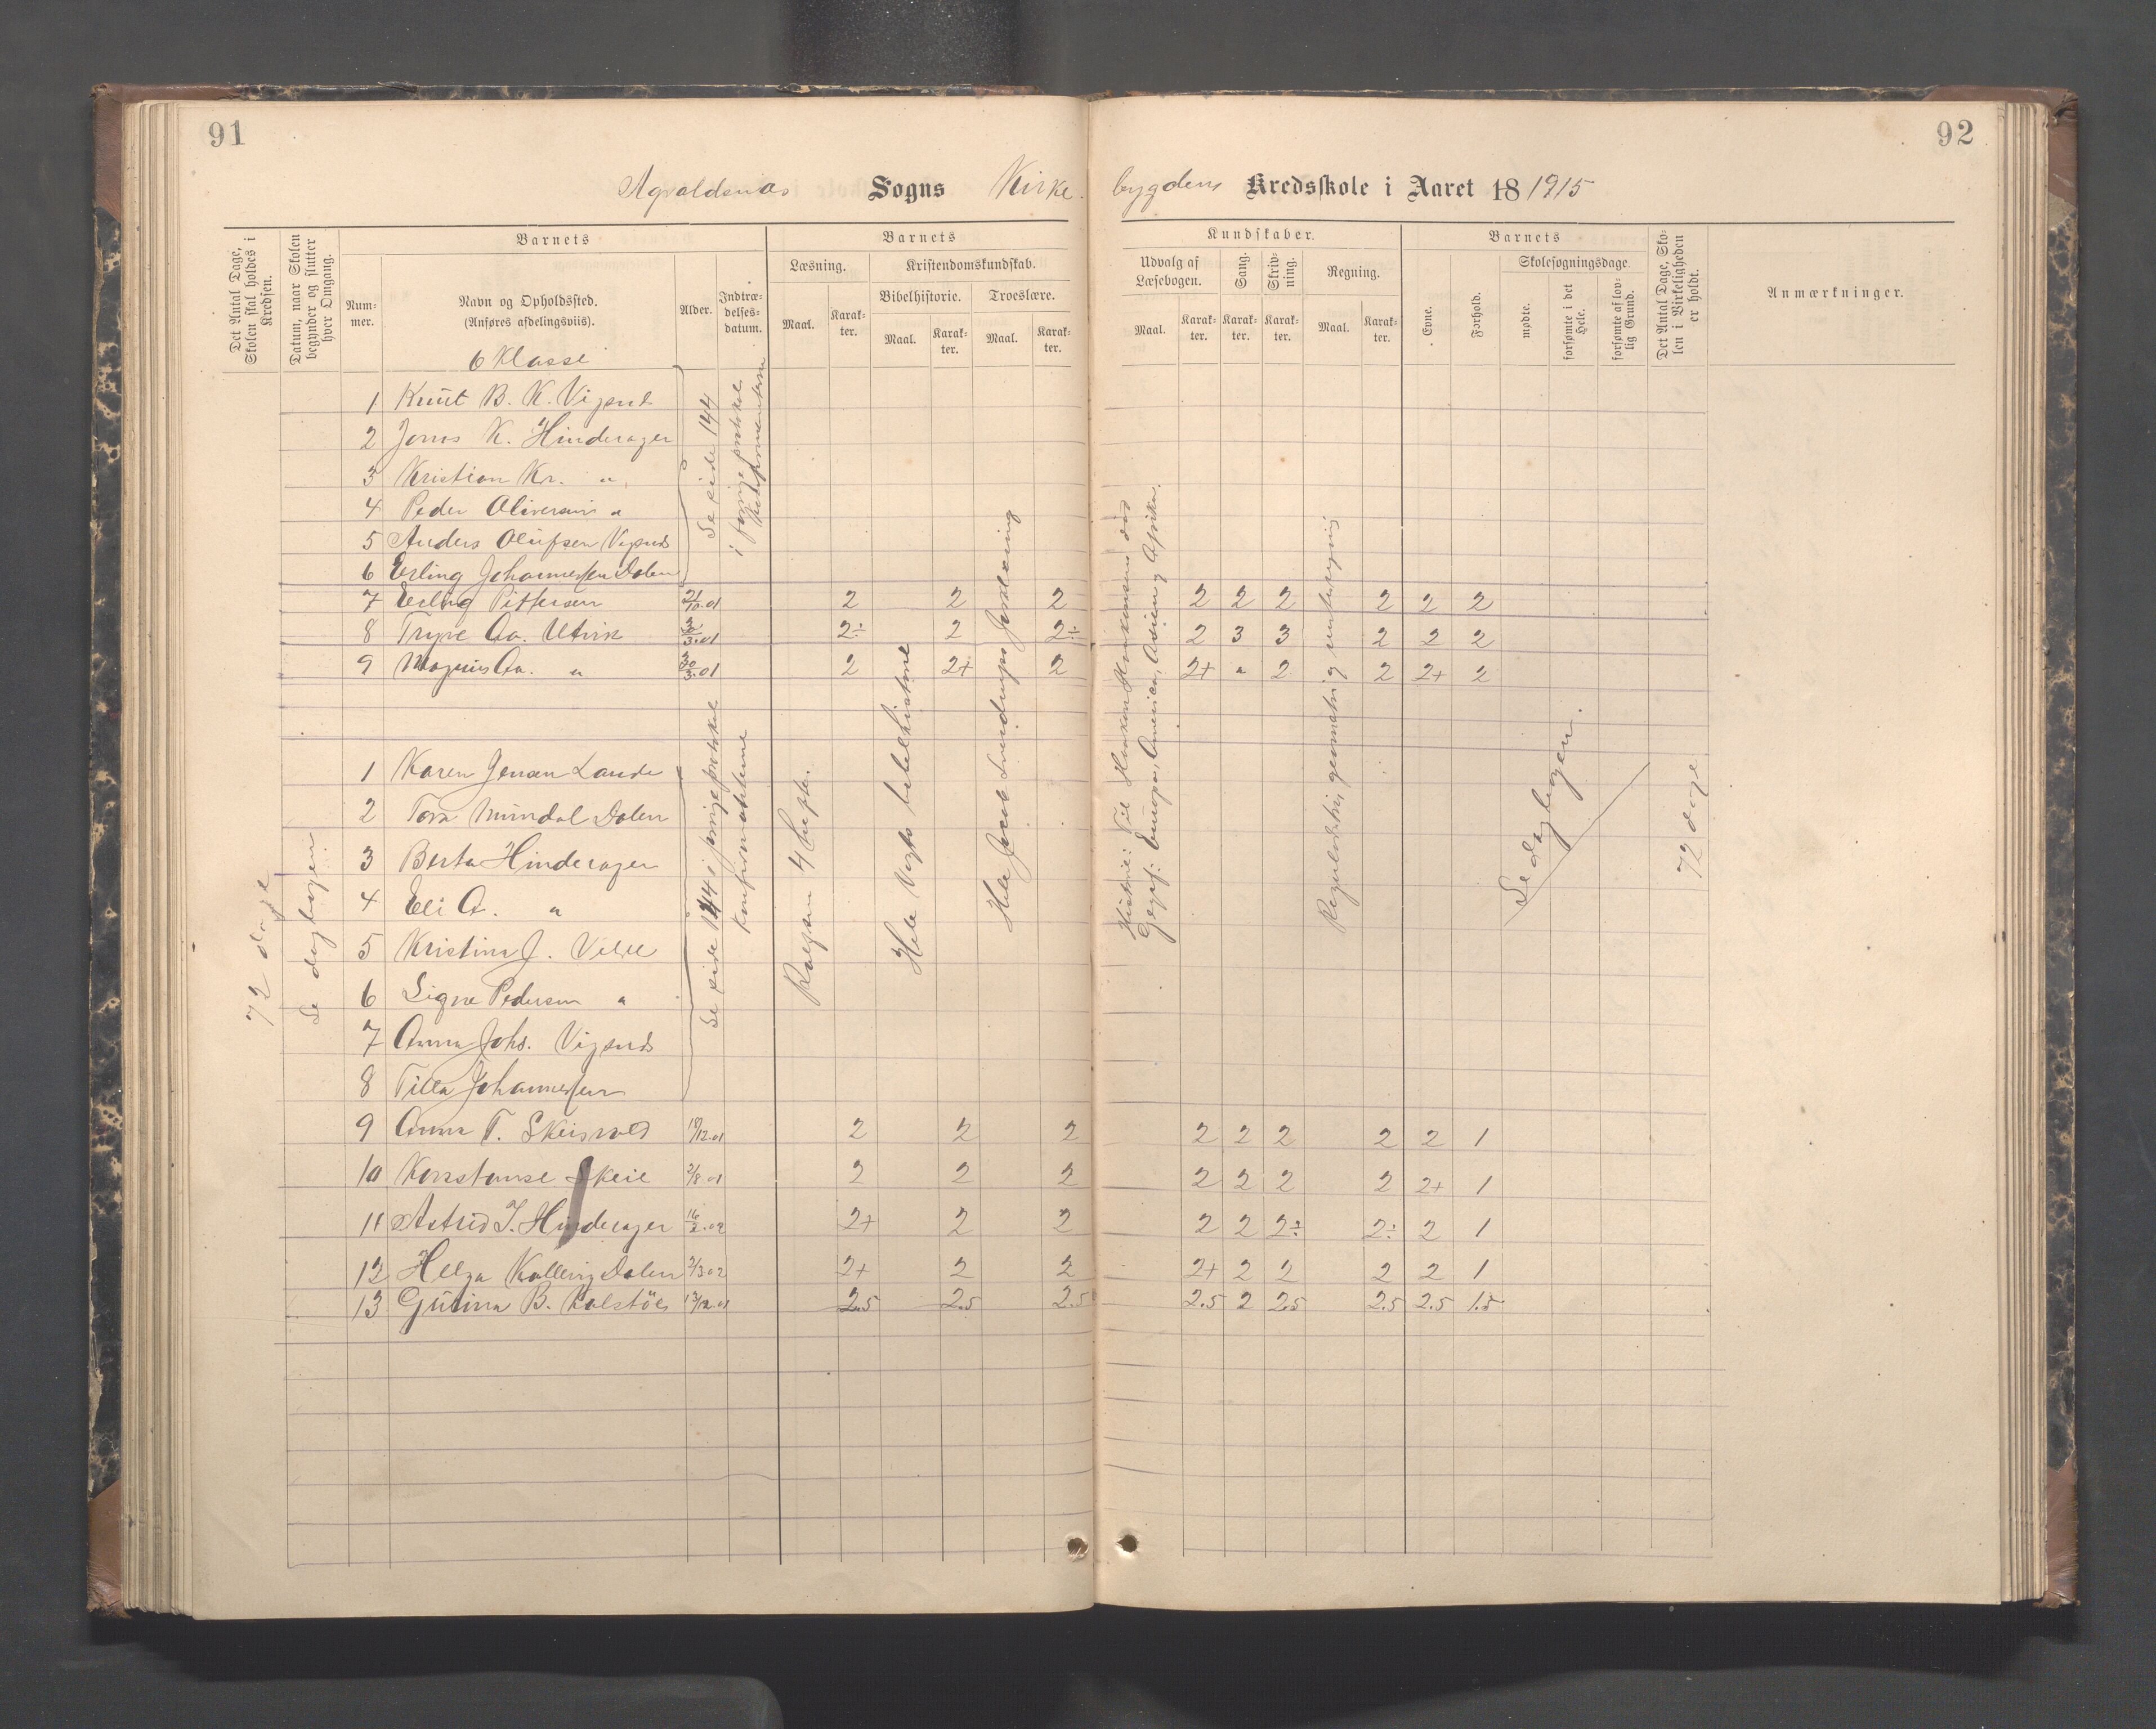 91
92
Sogns Kirke-
bygdens Kredsskole i Aaret 18 1915
Det Antal Dage, Skolen skal holdes i Kredsen.
Datum, naar Skolen begynder og slutter hver Omgang.
Barnets
Num-
mer.
Navn og Opholdssted.
(Anføres afdelingsviis).
Alder.
Indtræ-
delses-
datum.
Barnets
Læsning.
Maal.
Karak-
ter.
Kristendomskundskab.
Bibelhistorie.
Maal.
Karak-
ter.
Troeslære.
Maal.
Karak-
ter.
Kundskaber.
Udvalg af
Læsebogen.
Maal.
Karak-
ter.
Sang.
Karak-
ter.
Skriv-
ning.
Karak-
ter.
Regning.
Maal.
Karak-
ter.
Barnets
Evne.
Forhold.
Skolesøgningsdage.
mødte.
forsømte i det Hele.
forsømte af lov-
lig Grund.
Det Antal Dage, Sko-
len i Virkeligheden
er holdt.
Anmærkninger.
6 Klasse
1 Knut B. K. Vigsnd
2 Jons K. Hinderager
3 Kristian Kr. "
4 Peder Oliversen "
5 Anders Olufsen Vigsnd
6 Erling Johannessen Dalen
Se side 144
i forrige protokol
7 Erling Pettersen 21/10.01 2 2 2 2 2 2 2 2 2
8 Trygve Aa. Utvik 30/3.01 2÷ 2 2÷ 2 3 3 2 2 2
9 Magnus Aa. " 30/3.01 2 2+ 2 2+ " 2 2 2+ 2
1 Karen Jensen Lande
2 Tora Mundal Dalen
3 Berta Hinderager
4 Eli A. "
5 Kristina J. Velle
6 Signe Pedersen "
7 Anna Johs. Vigsnd
8 Tilla Johannessen
Se side 144 i forrige protokol
72 dage
Se dagbogen
Hele Vogts bibelhistorie
Hele Jacob Sverdrups forklaring
Geogr: Europa, Amerika, Asien og Afrika.
Se dagbogen.
72 dage
9 Anna T. Skeisvold 18/12.01 2 2 2 2 2 2 2 2 1
10 Konstanse Skeie 2/8.01 2 2 2 2 2 2 2 2+ 1
11 Astrid I. Hinderager 16/2.02 2+ 2 2 2 2 2÷ 2÷ 2 1
12 Helga Kallevig Dalen 2/3 02 2+ 2 2 2+ 2 2 2 2 1
13 Gurina B. Kolstøe 12/12.01 2.5 2.5 2.5 2.5 2 2.5 2.5 2.5 1.5